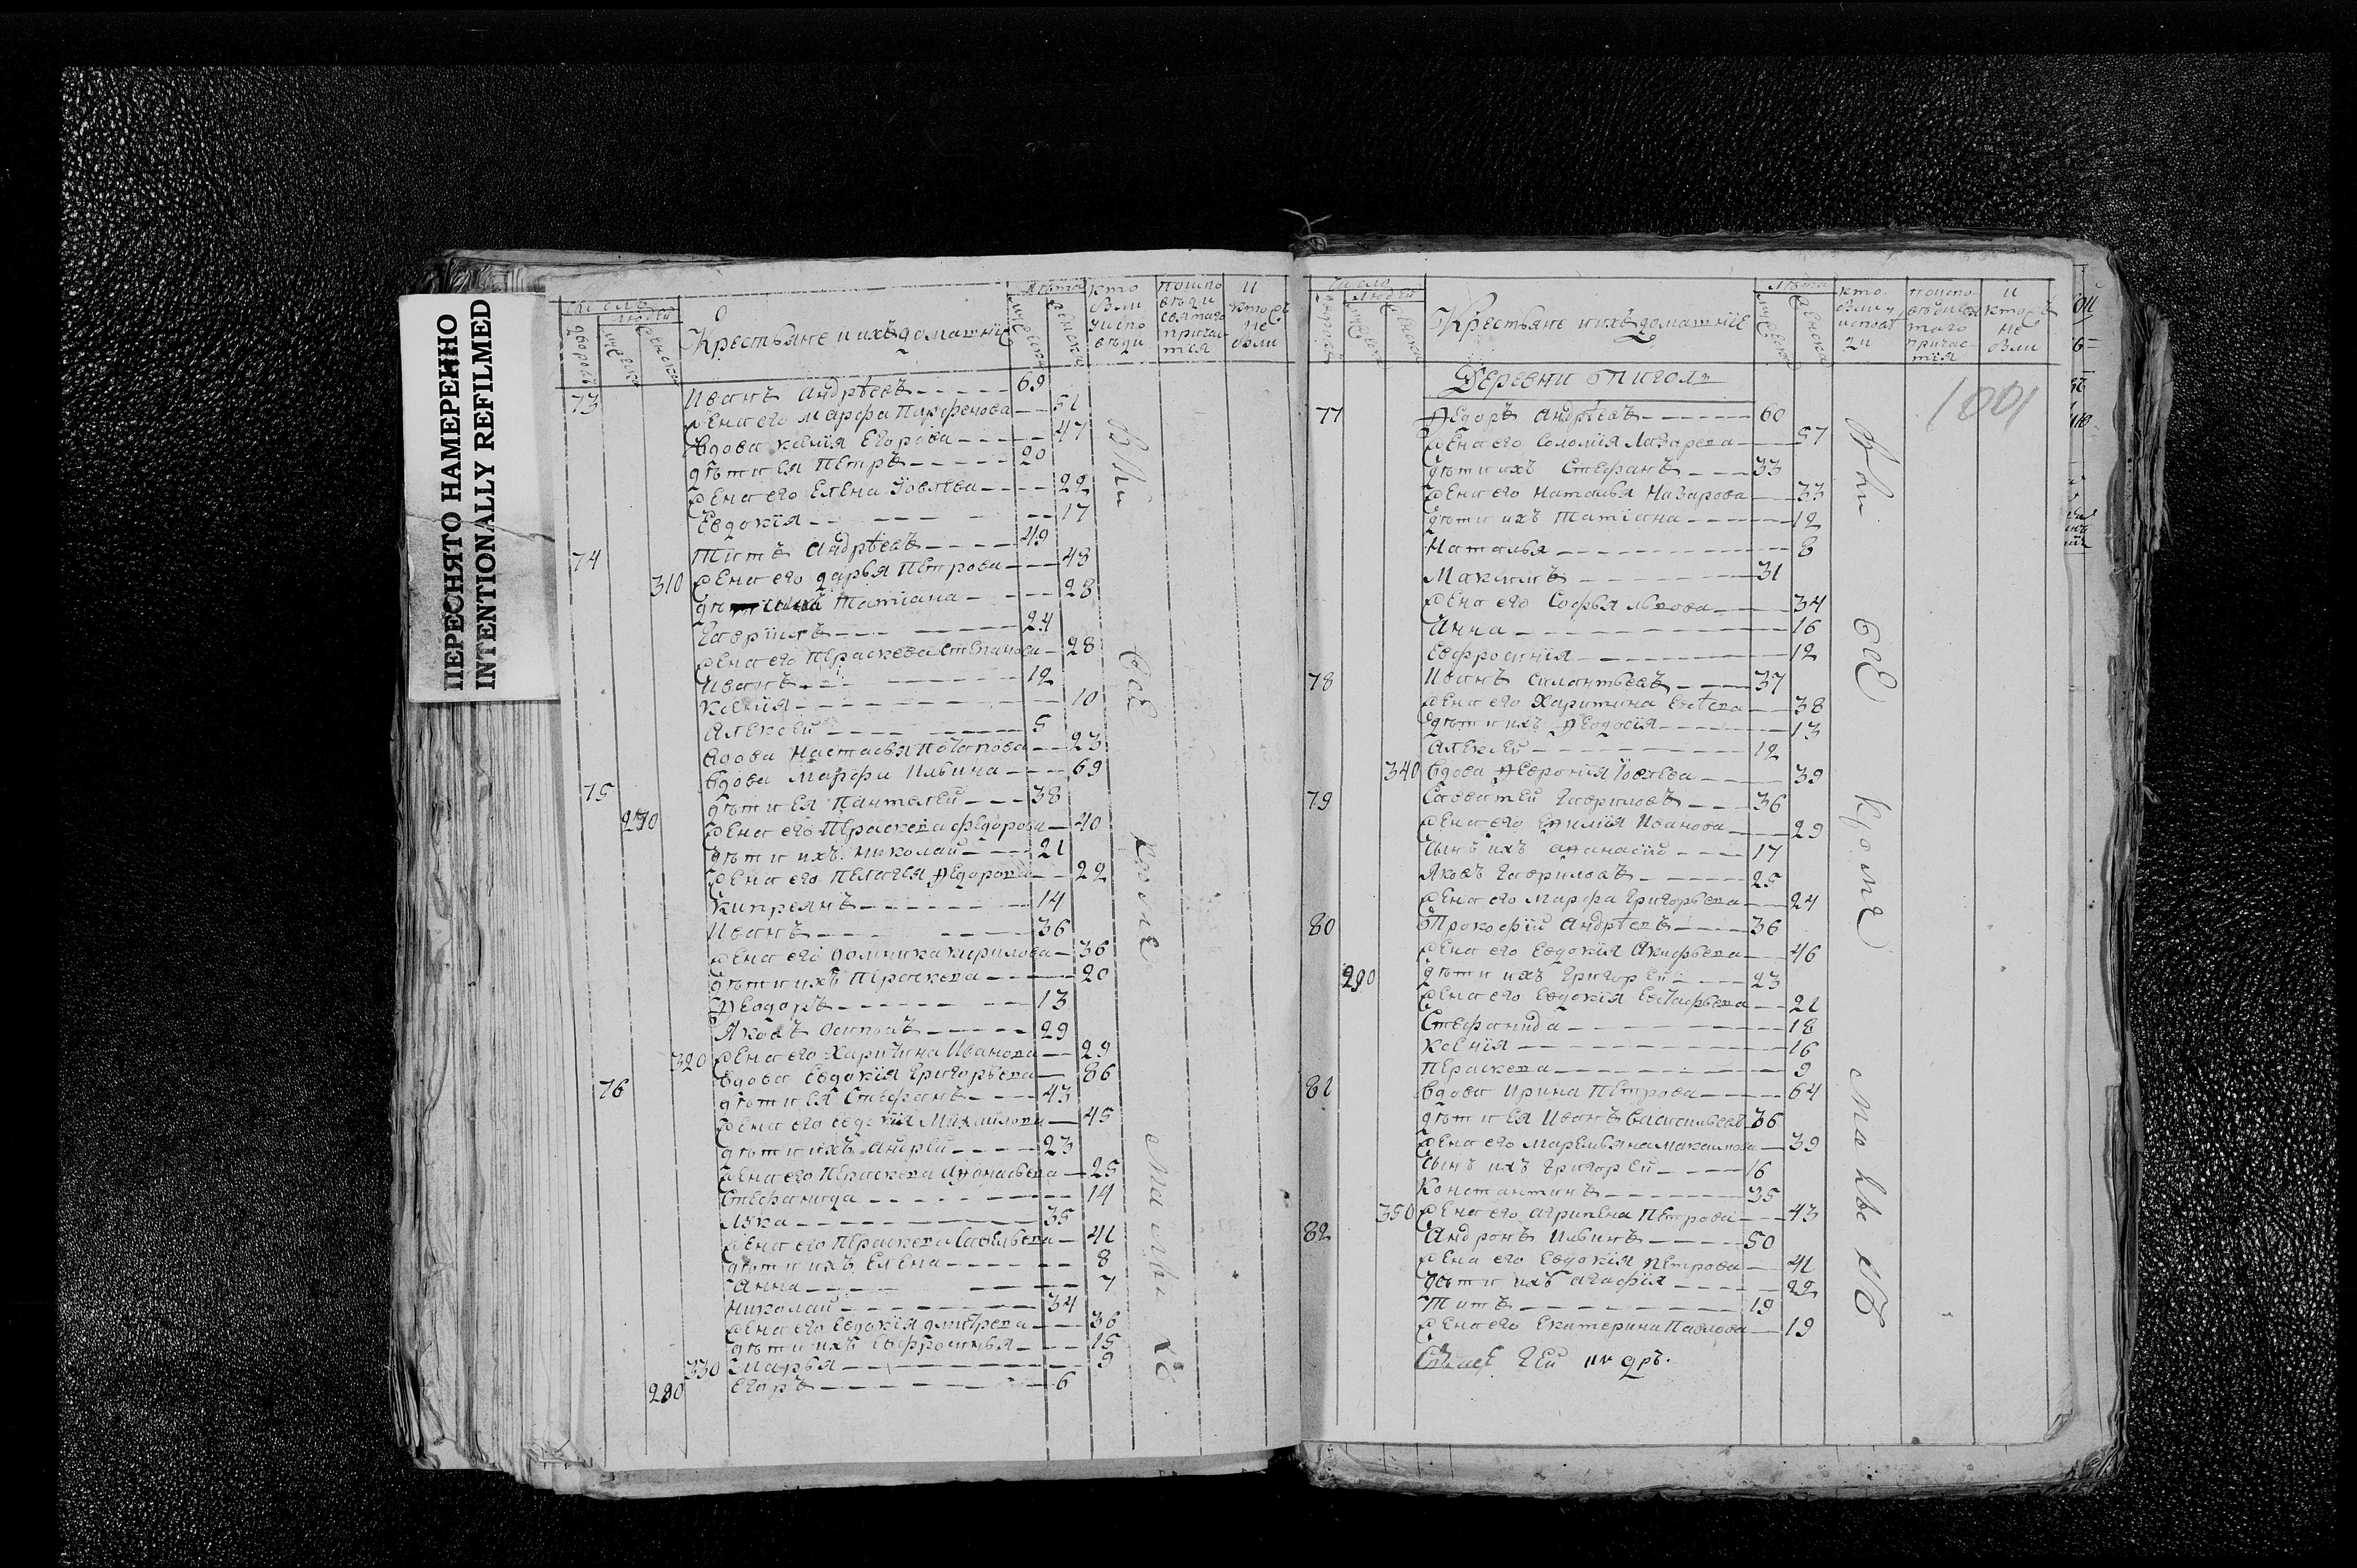 ПЕРЕСНЯТО НАМЕРЕННО
INTENTIONALLY REFILMED
число
людей
дворовъ
мужеска
женска
Крестьяне и ихъ домашнїе
лѣта
мужеска
женска
кто
были
у испо
вѣди
поиспо
вѣди
святаго
причас
тїя
и
ктоже
не
были
73 Иванъ Андрѣевъ 69
жена его Марфа Парфенова 51
вдова Ксенїя Егорова 47
дѣти ея Петръ 20
жена его Елена Їовлева 22
Евдокїя 17
74 Титъ Андрѣевъ 49
310 жена его Дарья Петрова 43
Татїана 28
Гаврїилъ 24
жена его Параскева Степанова 28
Иванъ 12
Ксенїя 10
Алексей 5
вдова Настасья Потапова 23
75 вдова Марфа Ильина 69
дѣти ея Пантелей 38
270 жена его Параскева Федорова 40
дѣти ихъ Николай 21
жена его Пелагея Ѳедорова 22
Кипреянъ 14
Иванъ 36
жена его Домника Кирилова 36
дѣти ихъ Параскева 20
Ѳеодоръ 13
Яковъ Осиповъ 29
320 жена его Харитина Иванова 29
76 вдова Евдокїя Григорьева 86
дѣти ея Стефанъ 43
жена его Евдокїя Михайлова 45
дѣти ихъ Андрей 23
жена его Параскева Аѳонасьева 25
Стефанида 14
Лука 35
жена его Параскева Савельева 41
дѣти ихъ Елена 8
Анна 7
Николай 34
жена его Евдокїя Дмитрева 36
дѣти ихъ Евфросинья 15
330 Марья 9
280 Егоръ 6
были все кроме малыхъ
число
людей
дворовъ
мужеска
женска
Крестьяне и ихъ домашнїе
лѣта
мужеска
женска
кто
были у
исповѣ
ди
поиспо
вѣди свя
таго
причас
тїя
и
ктоже
не
были
1001
77 Ѳедоръ Андрѣевъ 60
жена его Соломїя Лазарева 57
дѣти ихъ Стефанъ 33
жена его Наталья Назарова 33
дѣти ихъ Татїана 12
Наталья 8
Максимъ 31
жена его Софья Львова 34
Анна 16
Евфросинїя 12
78 Иванъ Силантьевъ 37
жена его Харитина Евсѣева 38
дѣти ихъ Ѳеодосїя 13
Алексей 12
340 вдова Ѳеврония Їовлева 39
79 Савватей Гавриловъ 36
жена его Иванова 29
сынъ ихъ Аѳанасїй 17
Яковъ Гавриловъ 25
жена его Марфа Григорьева 24
80 Прокофїй Андрѣевъ 36
жена его Евдокїя Акифьева 46
290 дѣти ихъ Григорей 23
жена его Евдокїя Евстафьева 21
Стефанида 18
Ксенїя 16
Параскева 9
81 вдова Ирина Петрова 64
дѣти ея Иванъ Васильевъ 36
жена его Маремьяна Максимова 39
сынъ ихъ Григорей 16
Константинъ 35
350 жена его Агрипена Петрова 43
82 Андронъ Ильинъ 50
жена его Евдокїя Петрова 41
дѣти ихъ Агафїя 22
Титъ 19
жена его Екатерина Павлова 19
были все кроме малыхъ